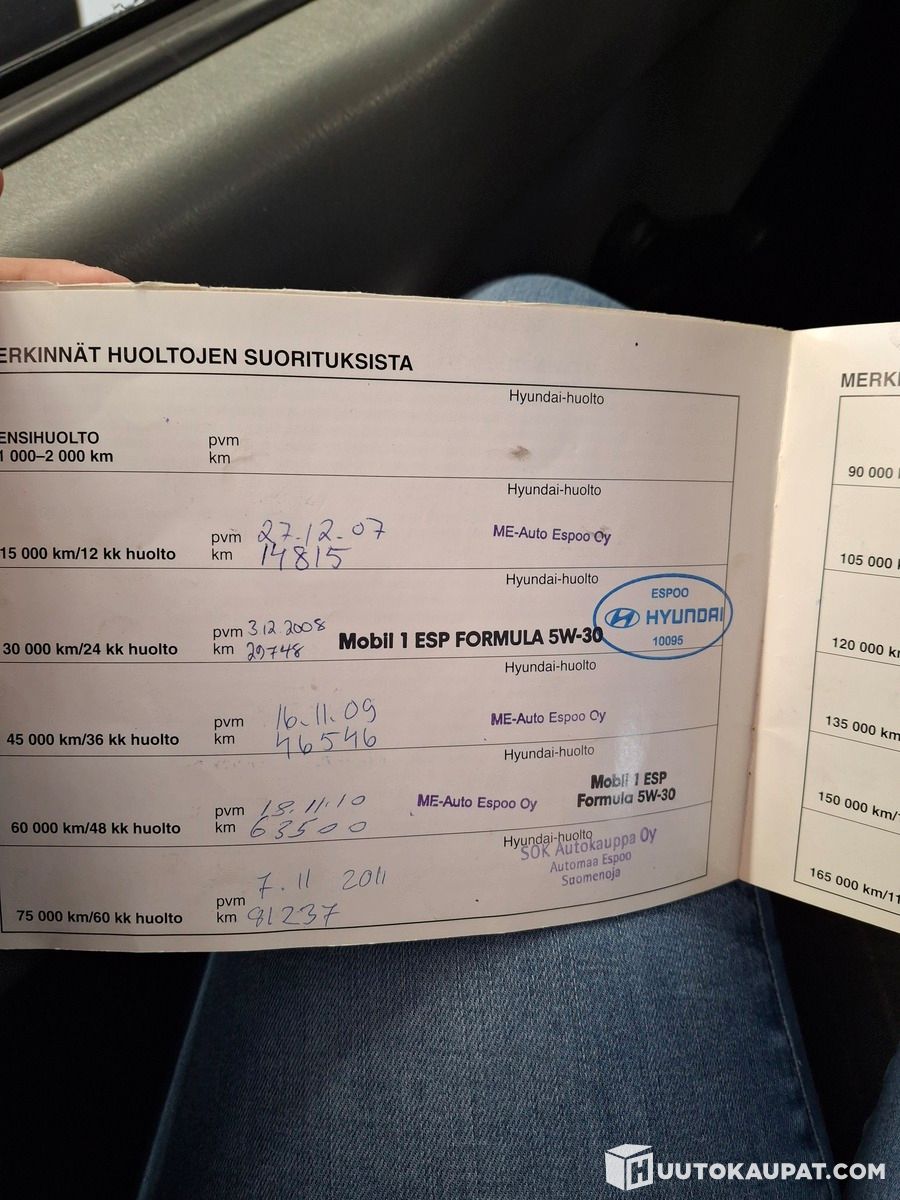 ERKINNÄT HUOLTOJEN SUORITUKSISTA
Hyundai-huolto
ENSIHUOLTO
1 000–2 000 km
pvm
km
Hyundai-huolto
15 000 km/12 kk huolto
pvm 27.12.07
km 14815
ME-Auto Espoo Oy
Hyundai-huolto
30 000 km/24 kk huolto
pvm 3.12.2008
km 29748
Mobil 1 ESP FORMULA 5W-30
ESPOO
HYUNDAI
10095
Hyundai-huolto
45 000 km/36 kk huolto
pvm 16.11.09
km 46546
ME-Auto Espoo Oy
Hyundai-huolto
60 000 km/48 kk huolto
pvm 18.11.10
km 63500
ME-Auto Espoo Oy
Mobil 1 ESP
Formula 5W-30
Hyundai-huolto
75 000 km/60 kk huolto
pvm 7.11 2011
km 81237
SOK Autokauppa Oy
Automaa Espoo
Suomenoja
MERKI
90 000
105 000
120 000 km
135 000 km
150 000 km/1
165 000 km/11
HUUTOKAUPAT.COM